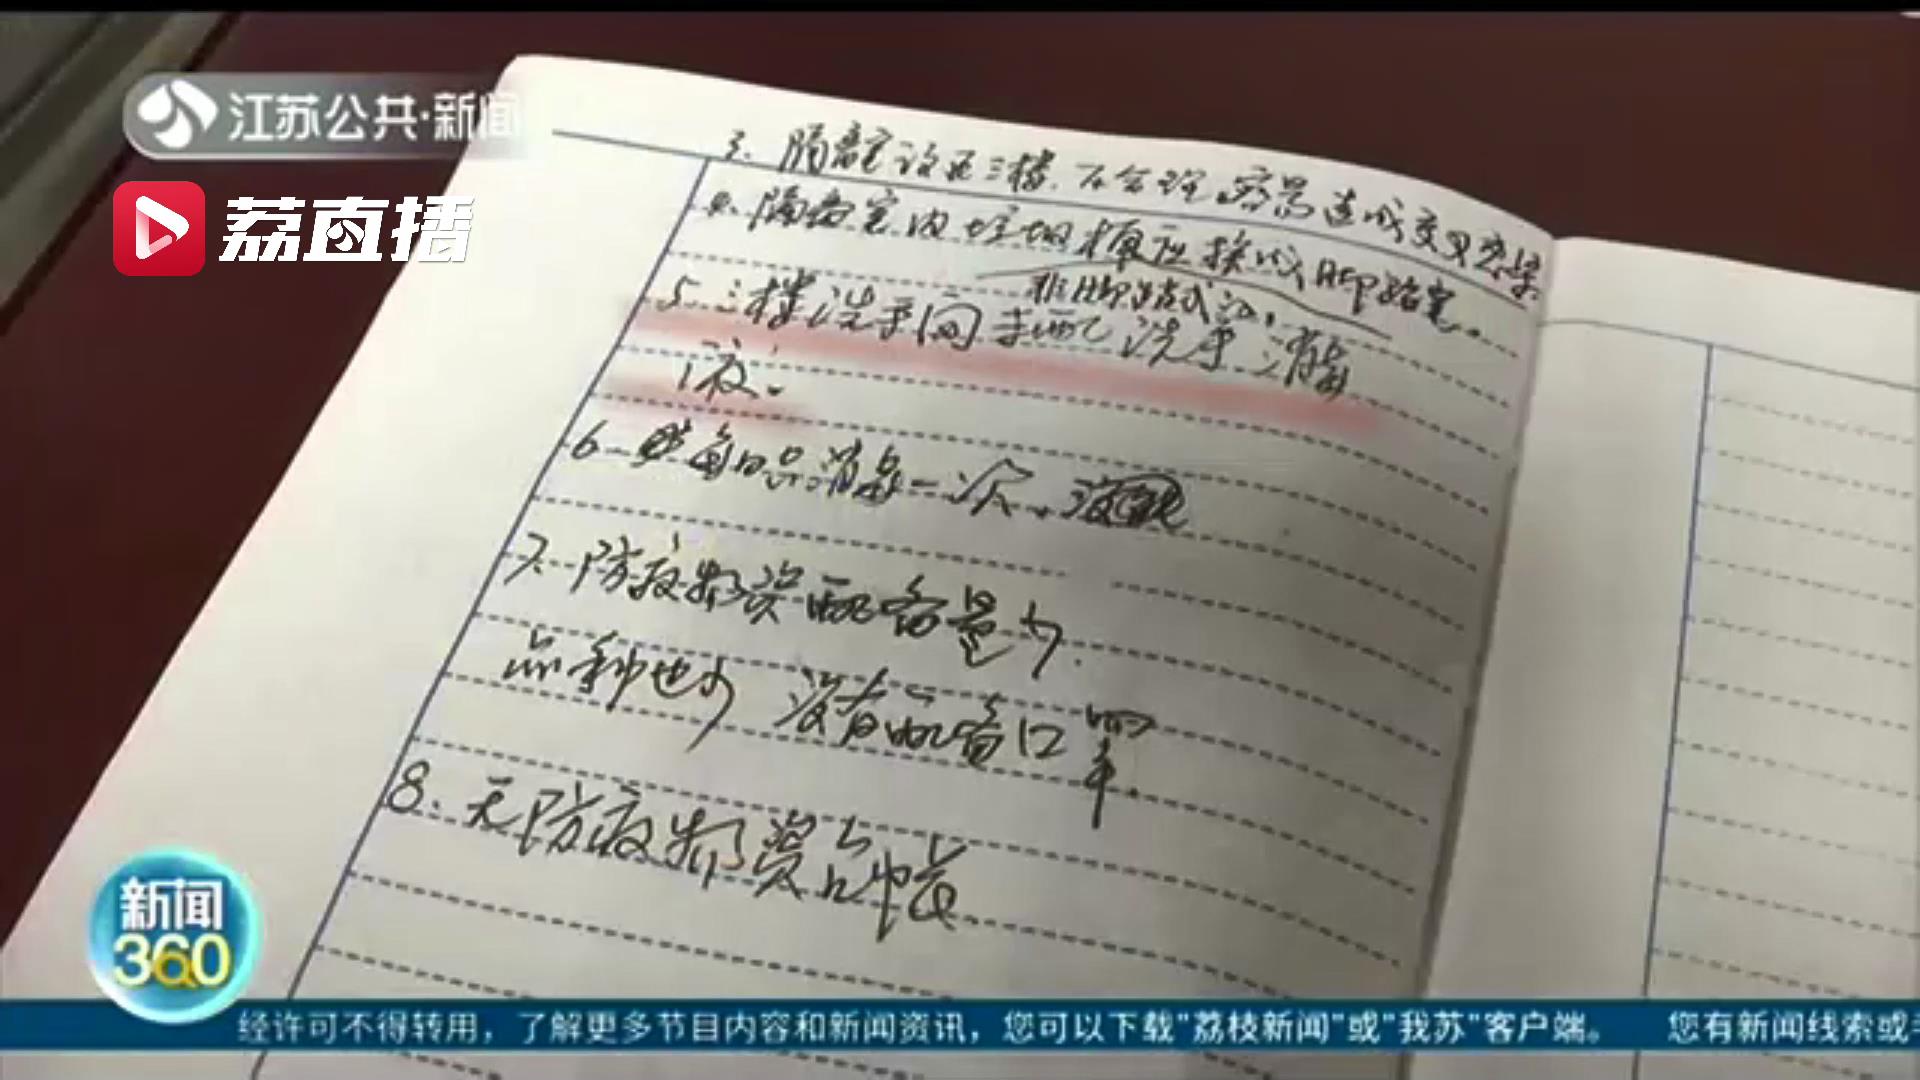 江苏公共·新闻
荔直播
3. 隔离室设在三楼，不合理，容易造成交叉感染
4. 隔离室内垃圾桶应换成脚踏式。
非脚踏式
5. 三楼洗手间未配洗手消毒
液。
6. 每日只消毒一次，
7. 防疫物资配备量少，
品种也少 没有配备口罩。
8. 无防疫物资台帐
新闻
360
经许可不得转用，了解更多节目内容和新闻资讯，您可以下载"荔枝新闻"或"我苏"客户端。 您有新闻线索或